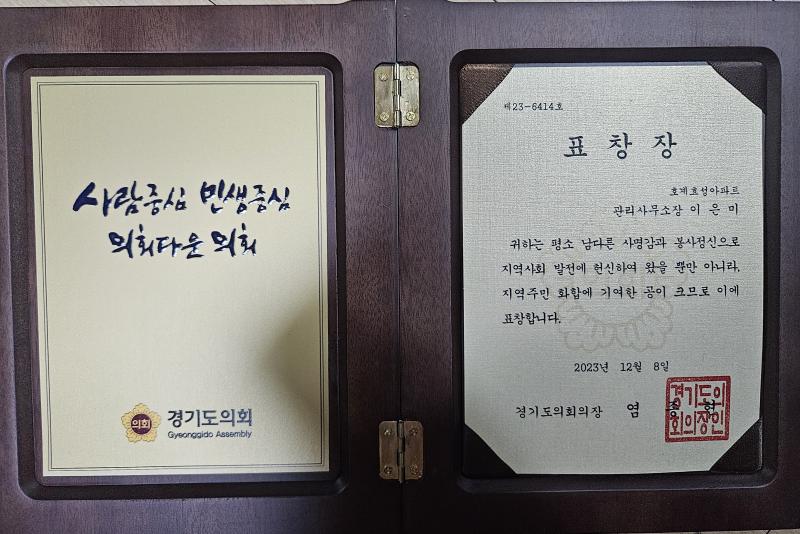 사람중심 민생중심
의회다운 의회
의회
경기도의회
Gyeonggido Assembly
제23-6414호
표 창 장
호계효성아파트
관리사무소장 이 은 미
귀하는 평소 남다른 사명감과 봉사정신으로
지역사회 발전에 헌신하여 왔을 뿐만 아니라,
지역주민 화합에 기여한 공이 크므로 이에
표창합니다.
2023년 12월 8일
경기도의회의장 염 종 현
경기도의
회의장인